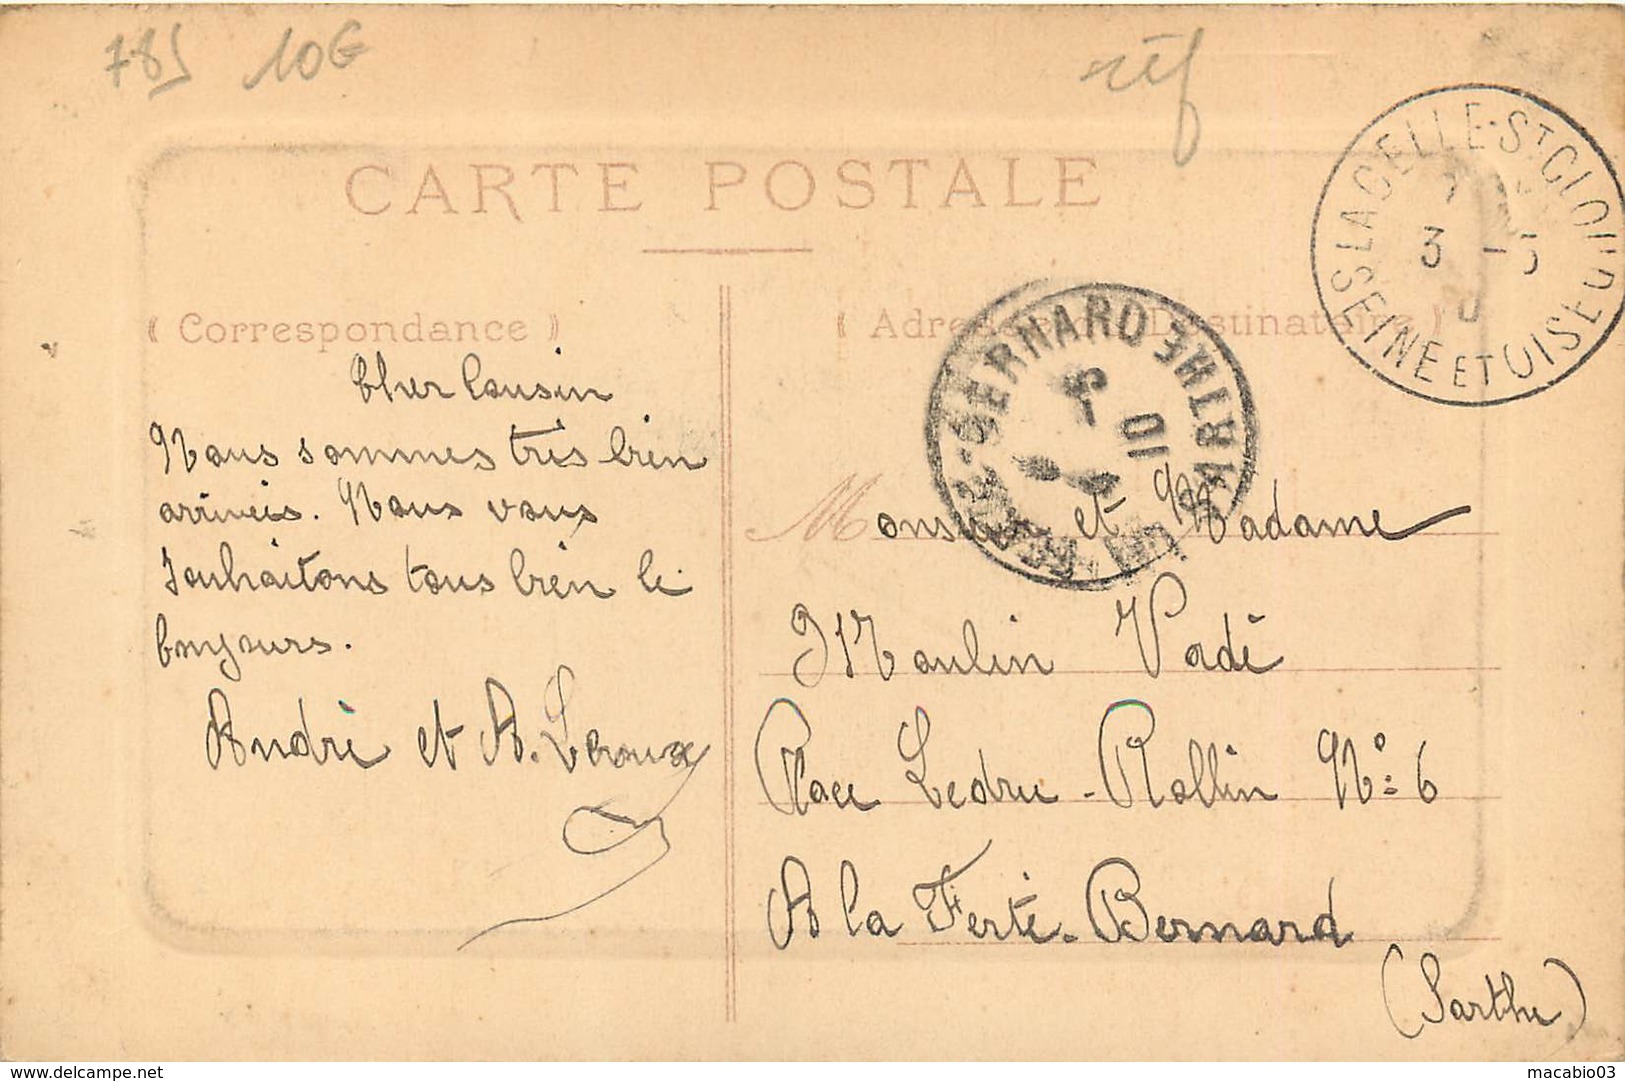 785 10€
réf
CARTE POSTALE
LA CELLE-ST CLOUD
3 -5
SEINE ET OISE
( Correspondance )
( Adresse du Destinataire )
BERNARD SARTHE
10
Cher Cousin
Nous sommes tres bien
arriveis. Nous vous
souhaitons tous bien le
bonjours.
André et A. Leroux
Monsieur et Madame
Moulin Vadé
Place Ledru-Rollin No: 6
A la Ferté-Bernard
(Sarthe)
delcampe.net
macabio03